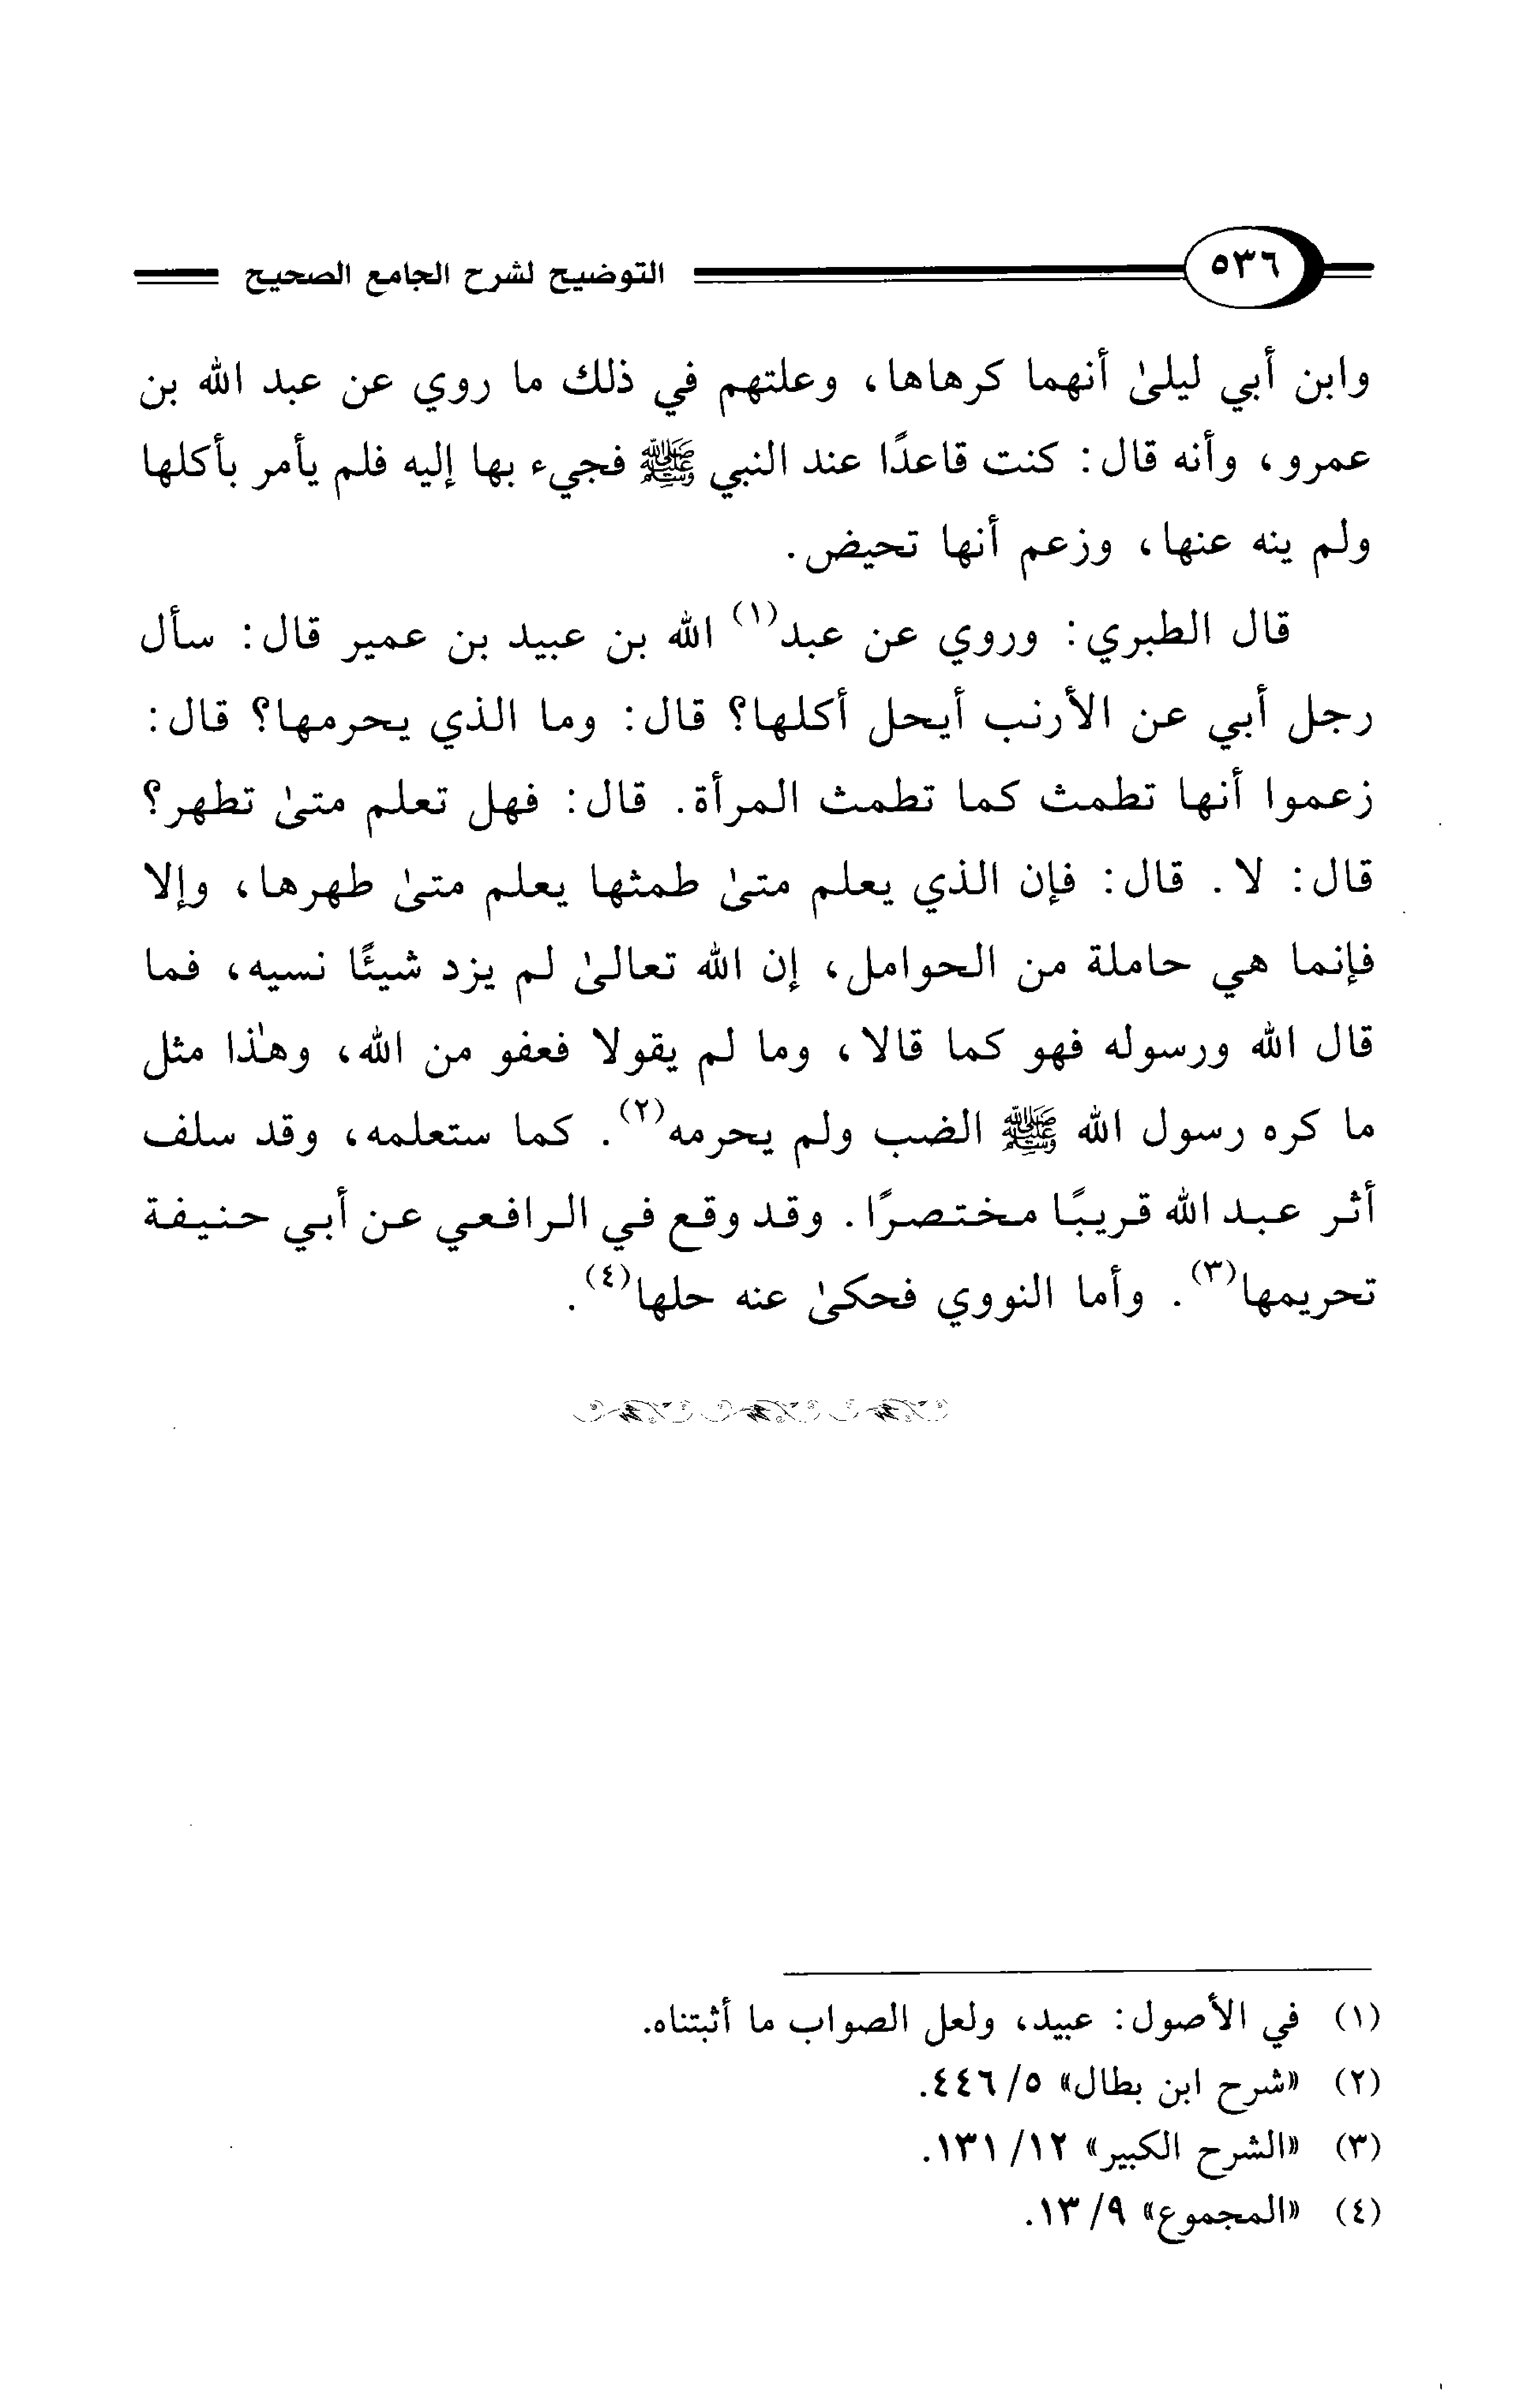 ٥٣٦ التوضيح لشرح الجامع الصحيح
وابن أبي ليلىٰ أنهما كرهاها، وعلتهم في ذلك ما روي عن عبد الله بن
عمرو، وأنه قال: كنت قاعدًا عند النبي ﷺ فجيء بها إليه فلم يأمر بأكلها
ولم ينه عنها، وزعم أنها تحيض.
قال الطبري: وروي عن عبد(١) الله بن عبيد بن عمير قال: سأل
رجل أبي عن الأرنب أيحل أكلها؟ قال: وما الذي يحرمها؟ قال:
زعموا أنها تطمث كما تطمث المرأة. قال: فهل تعلم متىٰ تطهر؟
قال: لا. قال: فإن الذي يعلم متىٰ طمثها يعلم متىٰ طهرها، وإلا
فإنما هي حاملة من الحوامل، إن الله تعالىٰ لم يزد شيئًا نسيه، فما
قال الله ورسوله فهو كما قالا، وما لم يقولا فعفو من الله، وهٰذا مثل
ما كره رسول الله ﷺ الضب ولم يحرمه(٢). كما ستعلمه، وقد سلف
أثر عبد الله قريبًا مختصرًا. وقد وقع في الرافعي عن أبي حنيفة
تحريمها(٣). وأما النووي فحكىٰ عنه حلها(٤).
(١) في الأصول: عبيد، ولعل الصواب ما أثبتناه.
(٢) «شرح ابن بطال» ٥/ ٤٤٦.
(٣) «الشرح الكبير» ١٢/ ١٣١.
(٤) «المجموع» ٩/ ١٣.